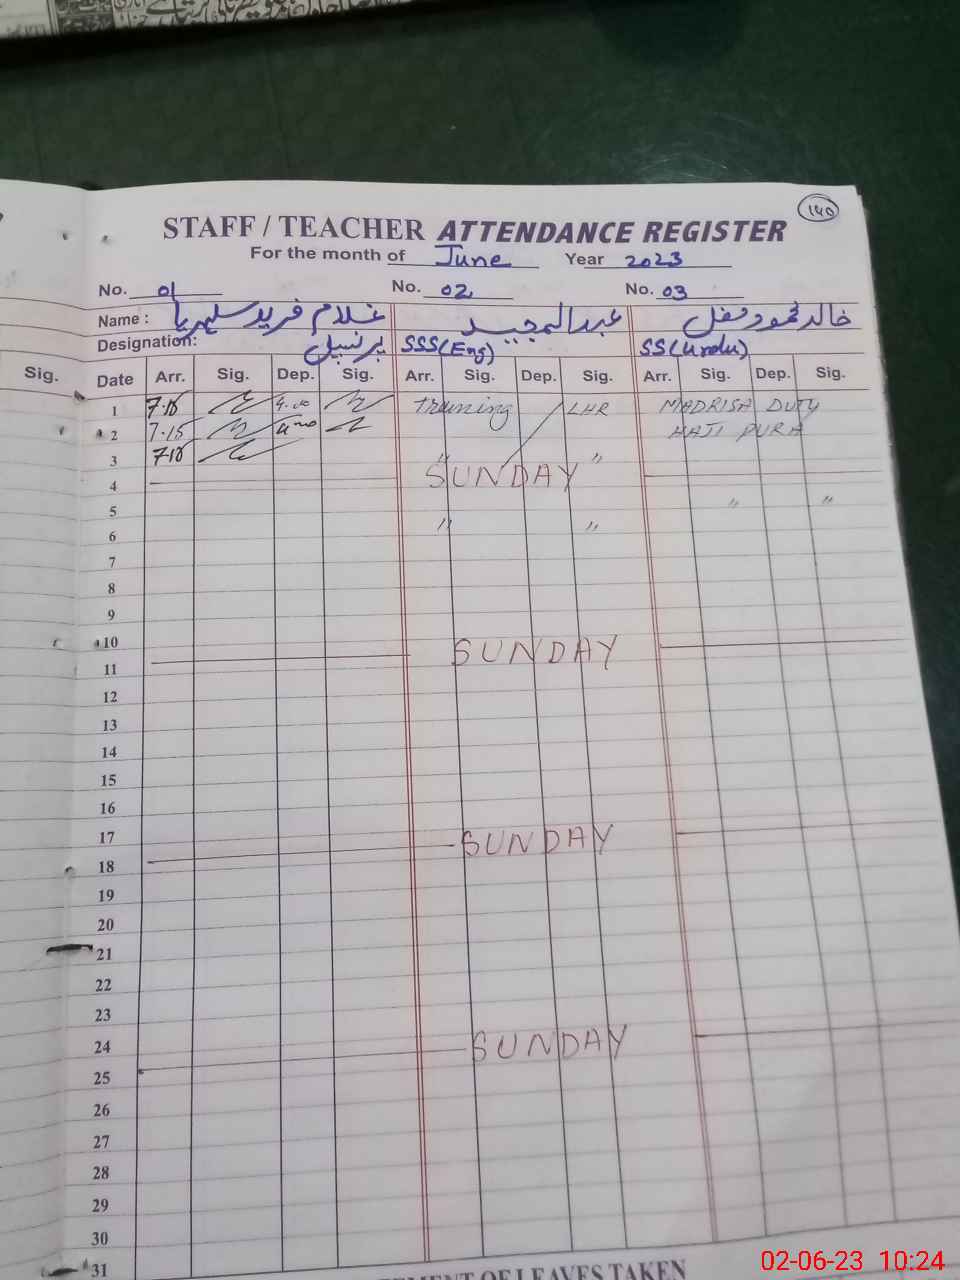 140
STAFF / TEACHER ATTENDANCE REGISTER
For the month of June Year 2023
No. 01 No. 02 No. 03
Name : غلام فرید سلہریا عبدالمجید خالد محمود مغل
Designation: پرنسپل SSS(Eng) SS(Urdu)
Sig. Date Arr. Sig. Dep. Sig. Arr. Sig. Dep. Sig. Arr. Sig. Dep. Sig.
1 7-18 4-00 training LHR MADRISA DUTY
2 7-15 4-00 HAJI PURA
3 7-18 " "
4 SUNDAY
5 " "
6 " "
7
8
9
10
11 SUNDAY
12
13
14
15
16
17
18 SUNDAY
19
20
21
22
23
24
25 SUNDAY
26
27
28
29
30
31
OF LEAVES TAKEN
02-06-23 10:24